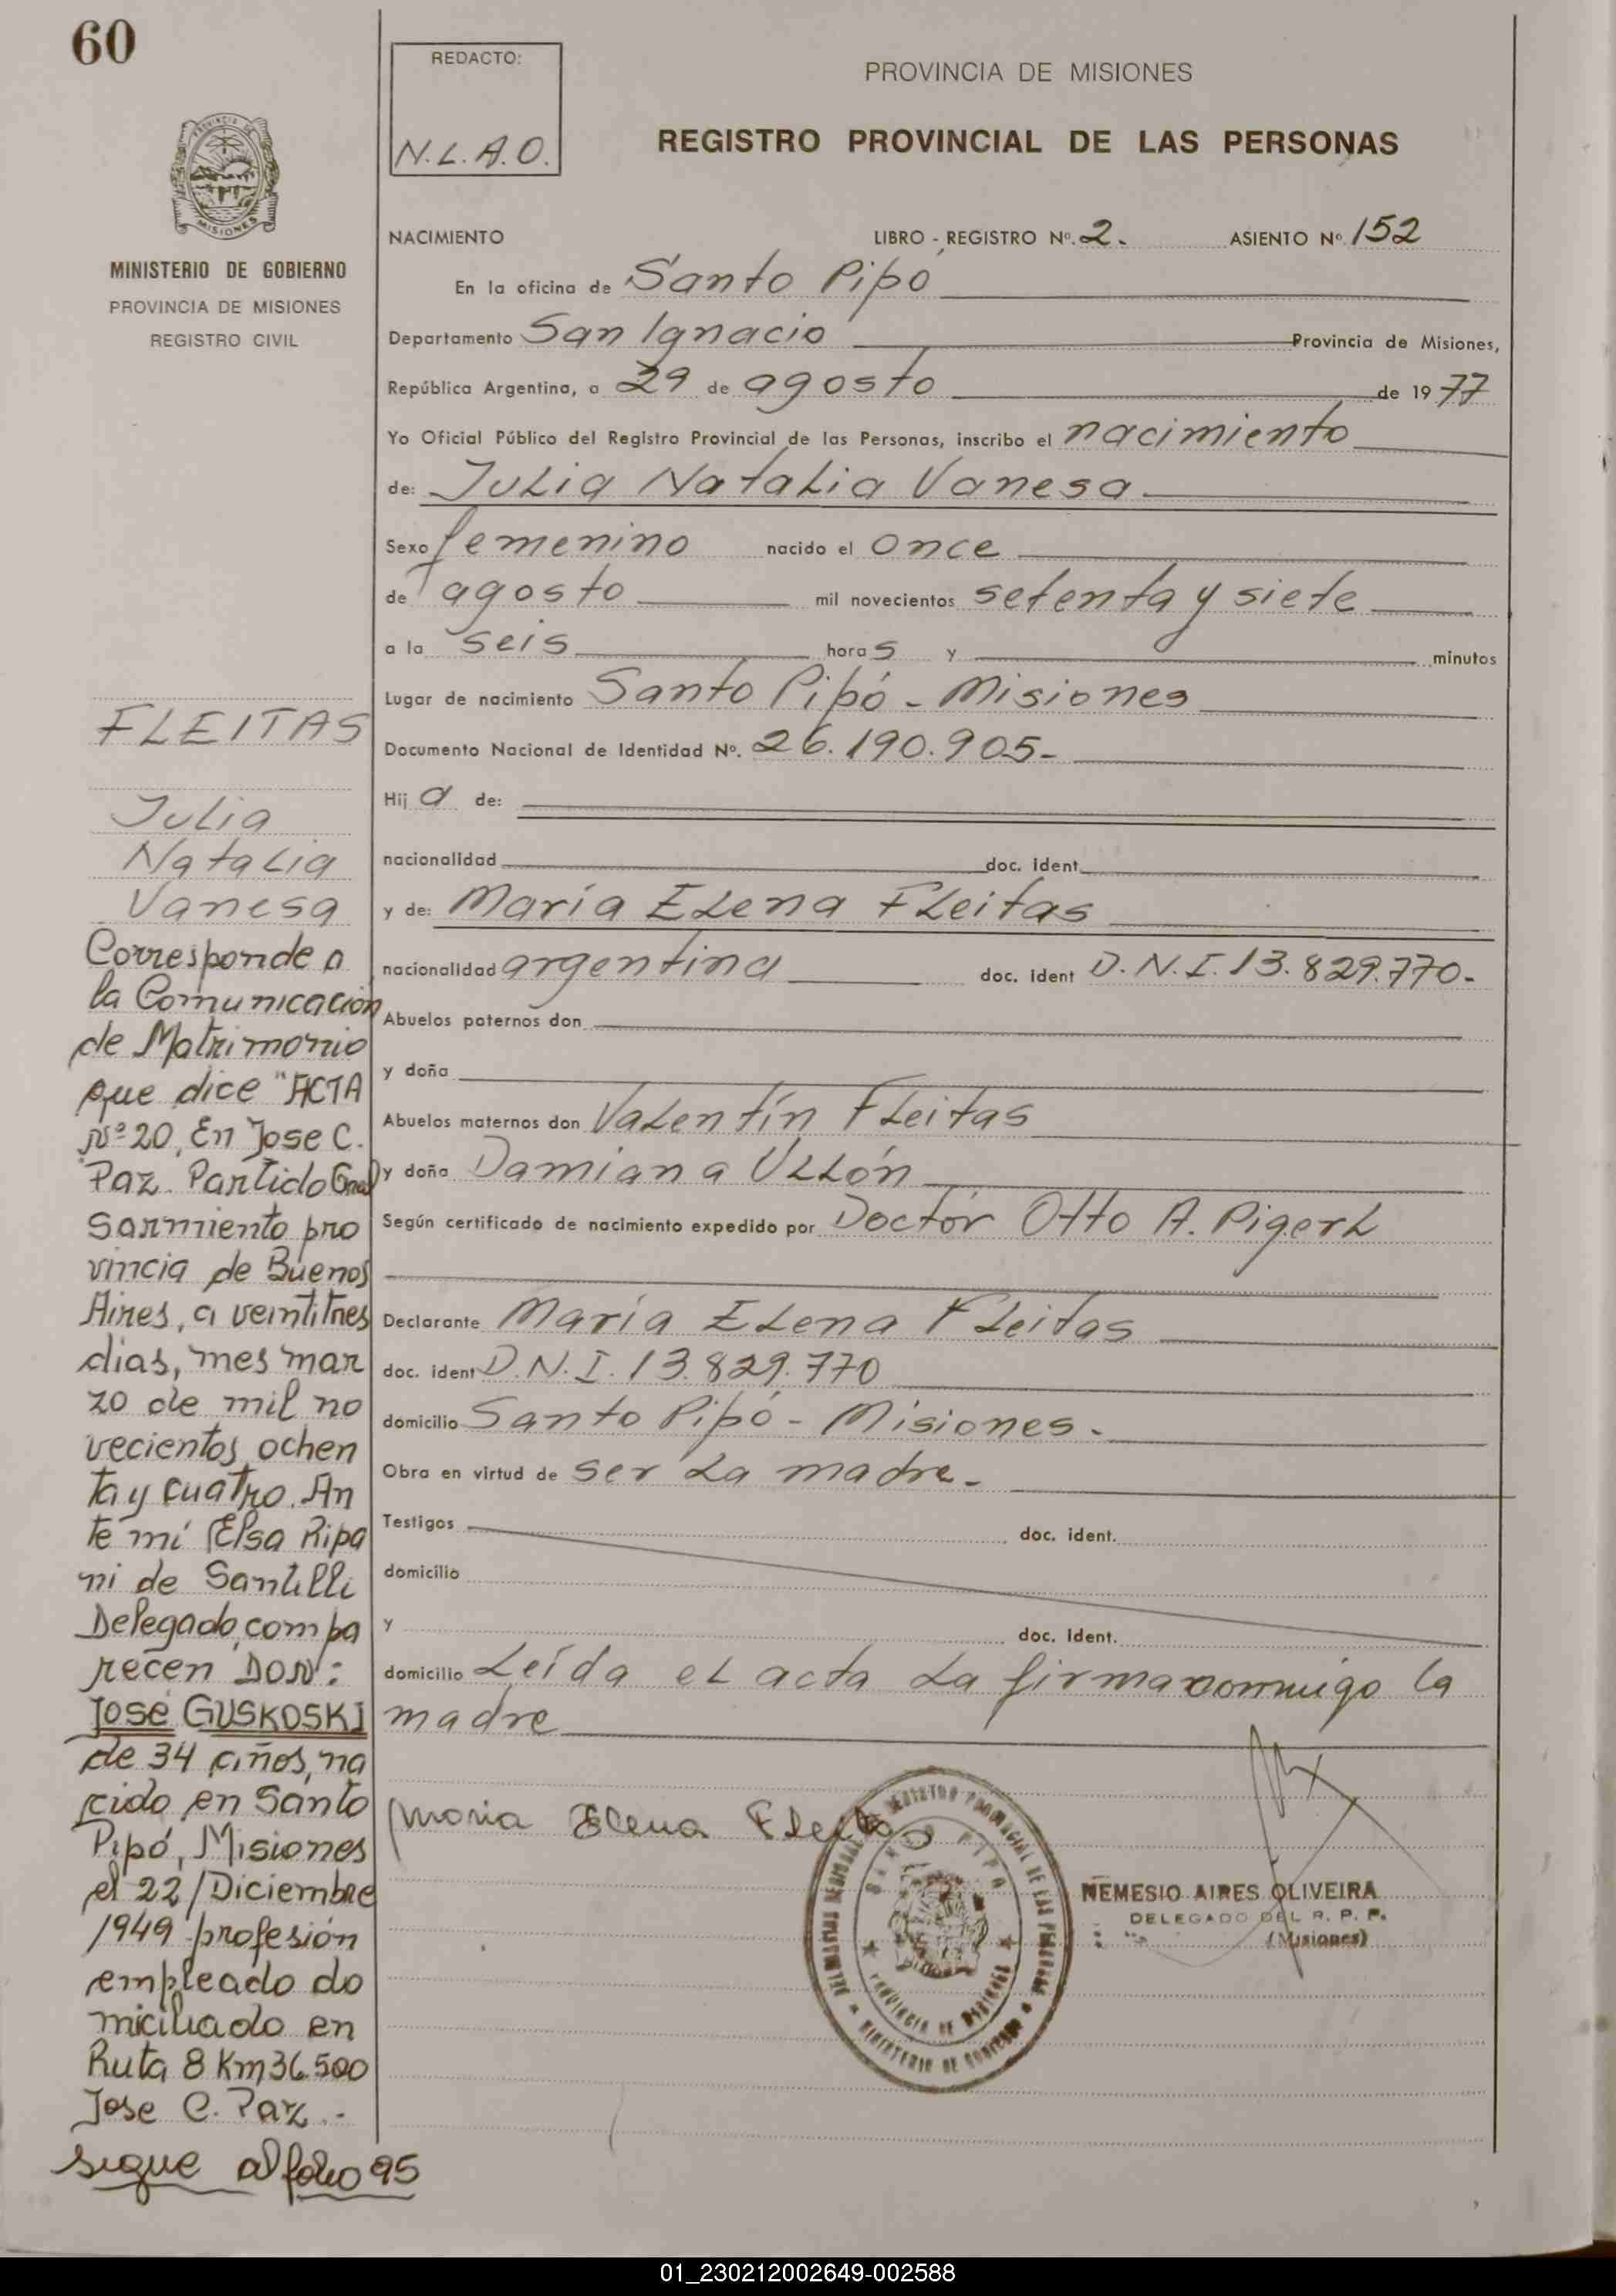 60
REDACTO:
N.L.A.O.
PROVINCIA DE MISIONES
REGISTRO PROVINCIAL DE LAS PERSONAS
MISIONES
MINISTERIO DE GOBIERNO
PROVINCIA DE MISIONES
REGISTRO CIVIL
NACIMIENTO LIBRO - REGISTRO Nº. 2. ASIENTO Nº. 152
En la oficina de Santo Pipó
Departamento San Ignacio Provincia de Misiones,
República Argentina, a 29 de agosto de 1977
Yo Oficial Público del Registro Provincial de las Personas, inscribo el nacimiento
de: Julia Natalia Vanesa
Sexo femenino nacido el once
de agosto mil novecientos setenta y siete
a la seis horas y minutos
Lugar de nacimiento Santo Pipó - Misiones
Documento Nacional de Identidad Nº. 26.190.905-
Hija de:
nacionalidad doc. ident.
y de: María Elena Fleitas
nacionalidad argentina doc. ident D.N.I. 13.829.770-
Abuelos paternos don
y doña
Abuelos maternos don Valentín Fleitas
y doña Damiana Ullón
Según certificado de nacimiento expedido por Doctor Otto A. Pigerl
Declarante María Elena Fleitas
doc. ident D.N.I. 13.829.770
domicilio Santo Pipó - Misiones.
Obra en virtud de ser la madre-
Testigos doc. ident.
domicilio
y doc. ident.
domicilio Leída el acta la firma conmigo la
madre
Maria Elena Fleitas
NEMESIO AIRES OLIVEIRA
DELEGADO DEL R. P. P.
(Misiones)
SANTO PIPO
PROVINCIA DE MISIONES
MINISTERIO DE GOBIERNO
FLEITAS
Julia
Natalia
Vanesa
Corresponde a
la Comunicación
de Matrimonio
que dice "ACTA
Nº 20, En Jose C.
Paz. Partido Gral
Sarmiento pro
vincia de Buenos
Aires, a veintitres
dias, mes mar
zo de mil no
vecientos ochen
ta y cuatro. An
te mí Elsa Ripa
ni de Santilli
Delegado, compa
recen DON:
José GUSKOSKI
de 34 años, na
cido en Santo
Pipó, Misiones
el 22/Diciembre
1949 profesión
empleado do
miciliado en
Ruta 8 Km 36.500
Jose C. Paz.-
sigue al folio 95
01_230212002649-002588